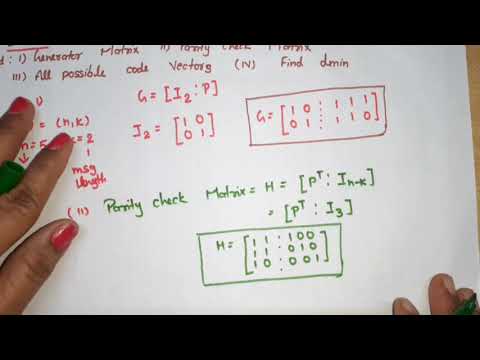 d: i) Generator Matrix ii) Parity check Matrix
iii) All possible code Vectors (iv) Find dmin
i)
G = [I₂ : P]
= (n, k)
n = 5 = 2
msg length
I₂ = [1 0
0 1]
G = [1 0 : 1 1 1
0 1 : 1 1 0]
(ii) Parity check Matrix = H = [Pᵀ : Iₙ₋ₖ]
= [Pᵀ : I₃]
H = [1 1 : 1 0 0
1 1 : 0 1 0
1 0 : 0 0 1]